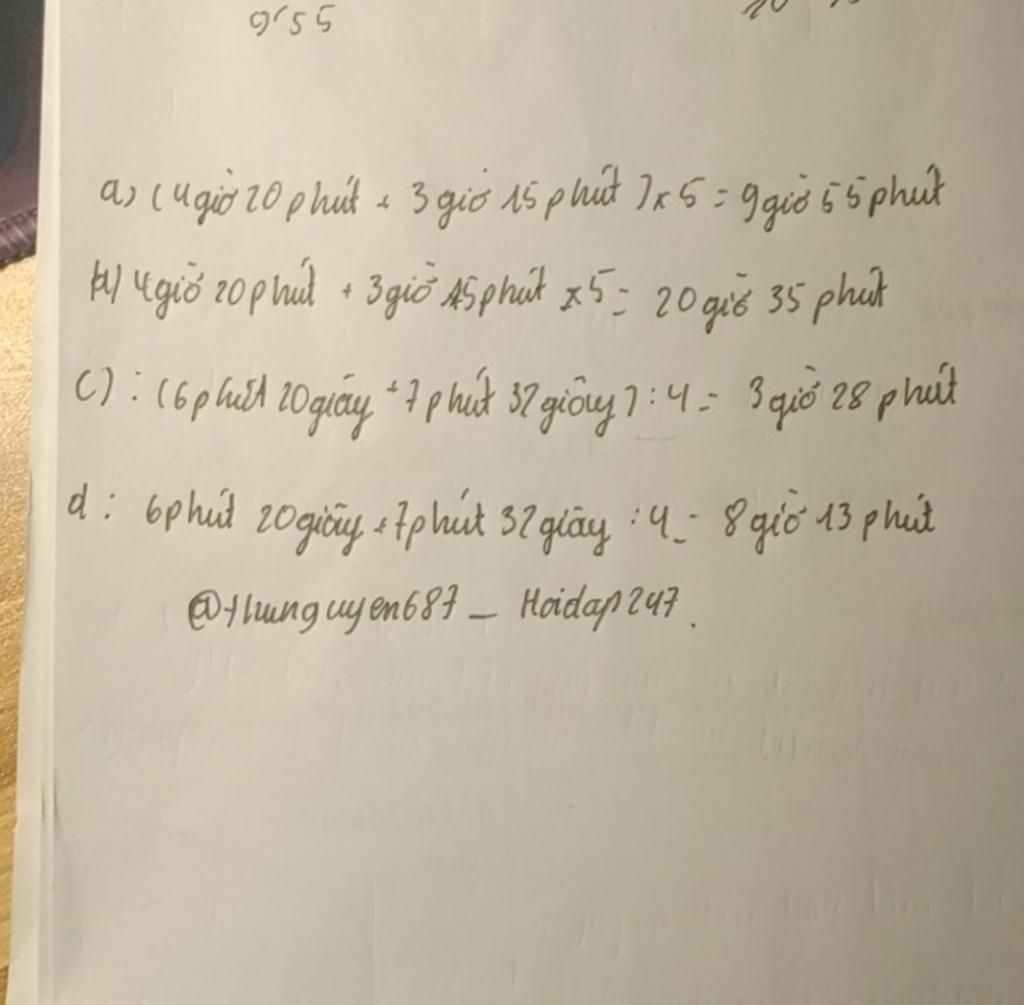 9'55
a) (4 giờ 20 phút + 3 giờ 15 phút) x 5 = 9 giờ 55 phút
b) 4 giờ 20 phút + 3 giờ 15 phút x 5 = 20 giờ 35 phút
c) : (6 phút 20 giây + 7 phút 32 giây) : 4 = 3 giờ 28 phút
d : 6 phút 20 giây + 7 phút 32 giây : 4 = 8 giờ 13 phút
@thunguyen687 - Hoidap247.